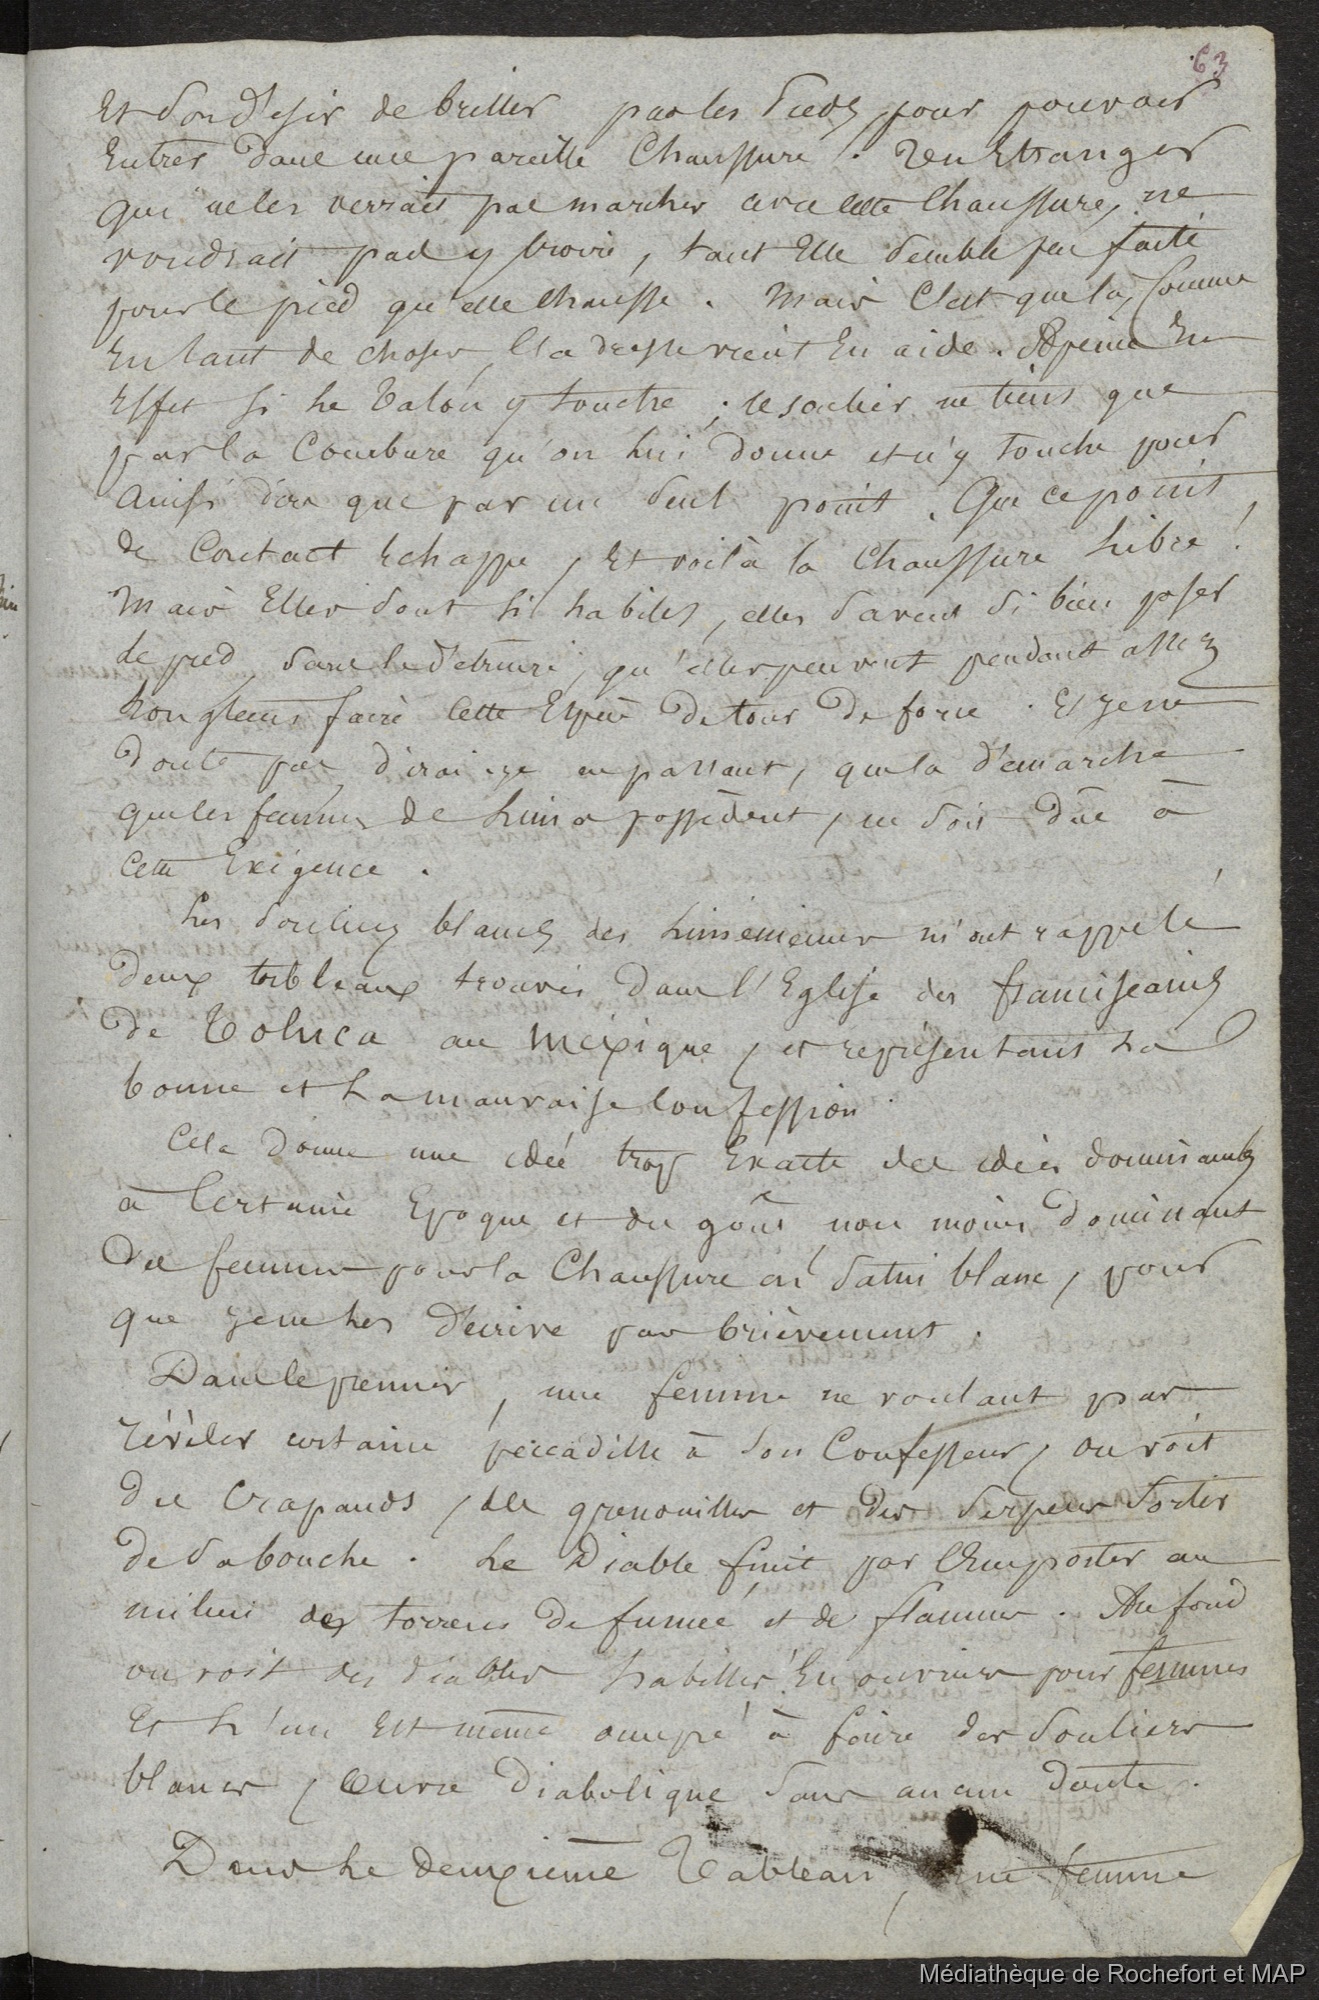 63
Et son d'esir de briller par les pieds, pour pouvoir
Entrer dans une pareille Chaussure. Un Etranger
qui ne les verrait pas marcher avec cette Chaussure, ne
voudrait pas y croire, tant Elle semble peu faite
pour le pied qu'elle chausse. Mais C'est que là, Comme
En tant de choses, l'adresse vient En aide. Apeine En
Effet si le Talon y touche; le soulier ne tient que
par la Courbure qu'on lui donne et n'y touche pour
Ainsi dire que par un seul point. Que ce point
de Contact Echappe, Et voilà la Chaussure libre!
Mais Elles sont si habiles, elles savent si bien poser
le pied, sans le d'etruire, qu'elles peuvent pendant assez
longtems faire Cette Espèce de tour de force. Et je ne
doute pas, dirai-je en passant, que la d'emarche
que les femmes de Lima possèdent, ne soit dûe à
cette Exigence.
Les souliers blancs des Liméniennes m'ont rappelé
deux tableaux trouvés dans l'Eglise des franciscains
de Toluca au Mexique, et représentant La
bonne et La mauvaise Confession.
Cela donne une idée trop Exacte des idées dominantes
à Certaine Epoque et du goût non moins dominant
des femmes pour la Chaussure en satin blanc, pour
que je ne les d'ecrive pas brièvement.
Dans le premier, une femme ne voulant pas
révéler certaine peccadille à son Confesseur, on voit
des Crapauds, des grenouilles et des serpens sortir
de sa bouche. Le Diable finit par l'Emporter au
milieu des torrens de fumée et de flammes. Au fond
on voit des diables habillés En ouvriers pour femmes
Et L'un Est même occupé à faire des souliers
blancs, Œuvre Diabolique sans aucun doute.
Dans Le deuxième Tableau, une femme
Médiathèque de Rochefort et MAP